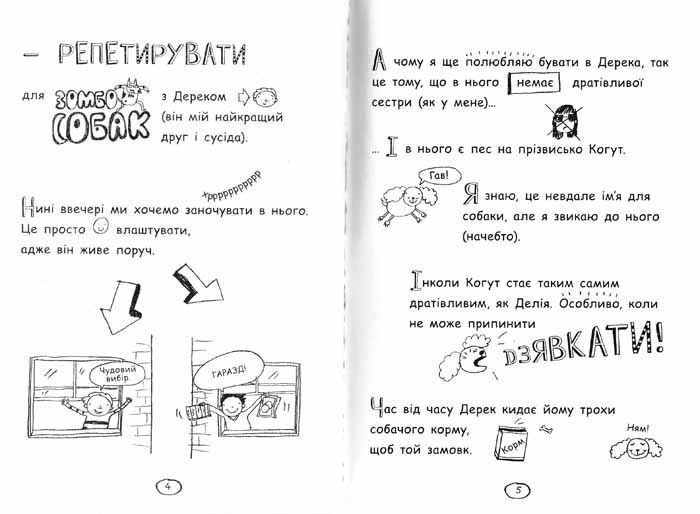 – РЕПЕТИРУВАТИ
для ЗОМБОСОБАК з Дереком
(він мій найкращий
друг і сусіда).
хррррррррррр
Нині ввечері ми хочемо заночувати в нього.
Це просто влаштувати,
адже він живе поруч.
Чудовий
вибір.
ГАРАЗД!
4
А чому я ще полюбляю бувати в Дерека, так
це тому, що в нього немає дратівливої
сестри (як у мене)...
... І в нього є пес на прізвисько Когут.
Гав!
Я знаю, це невдале ім’я для
собаки, але я звикаю до нього
(начебто).
Інколи Когут стає таким самим
дратівливим, як Делія. Особливо, коли
не може припинити
ДЗЯВКАТИ!
Час від часу Дерек кидає йому трохи
собачого корму,
щоб той замовк.
Корм
Ням!
5